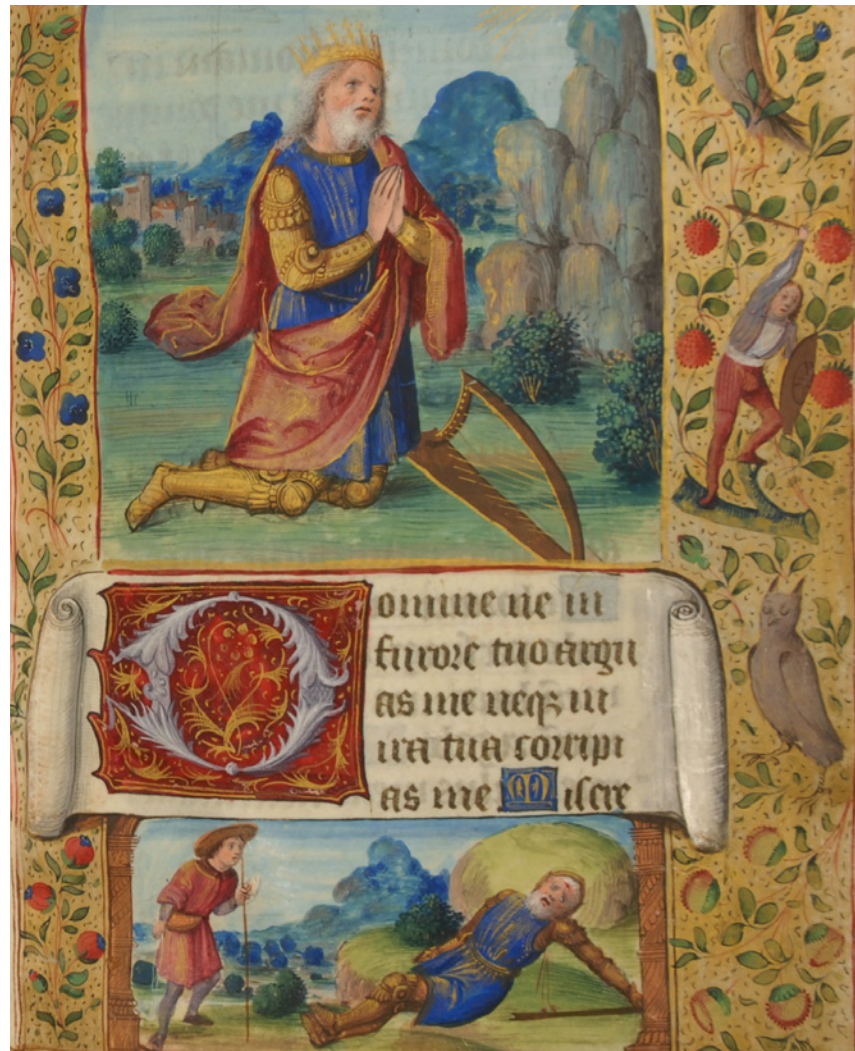 Domine ne in
furore tuo argu
as me neqz in
ira tua corripi
as me Misere